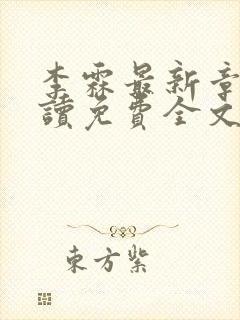 李霖最新章
讀免費全文
東方紫